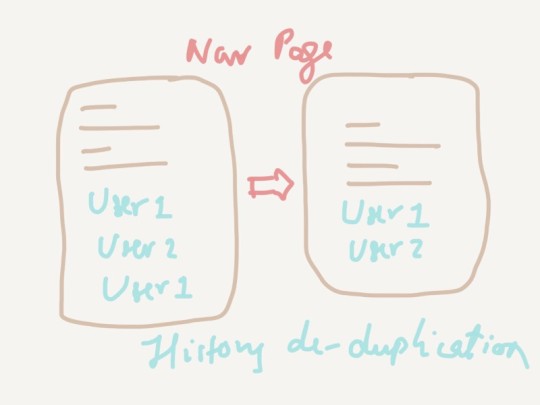 New Page
User 1
User 2
User 1
User 1
User 2
History de-duplication